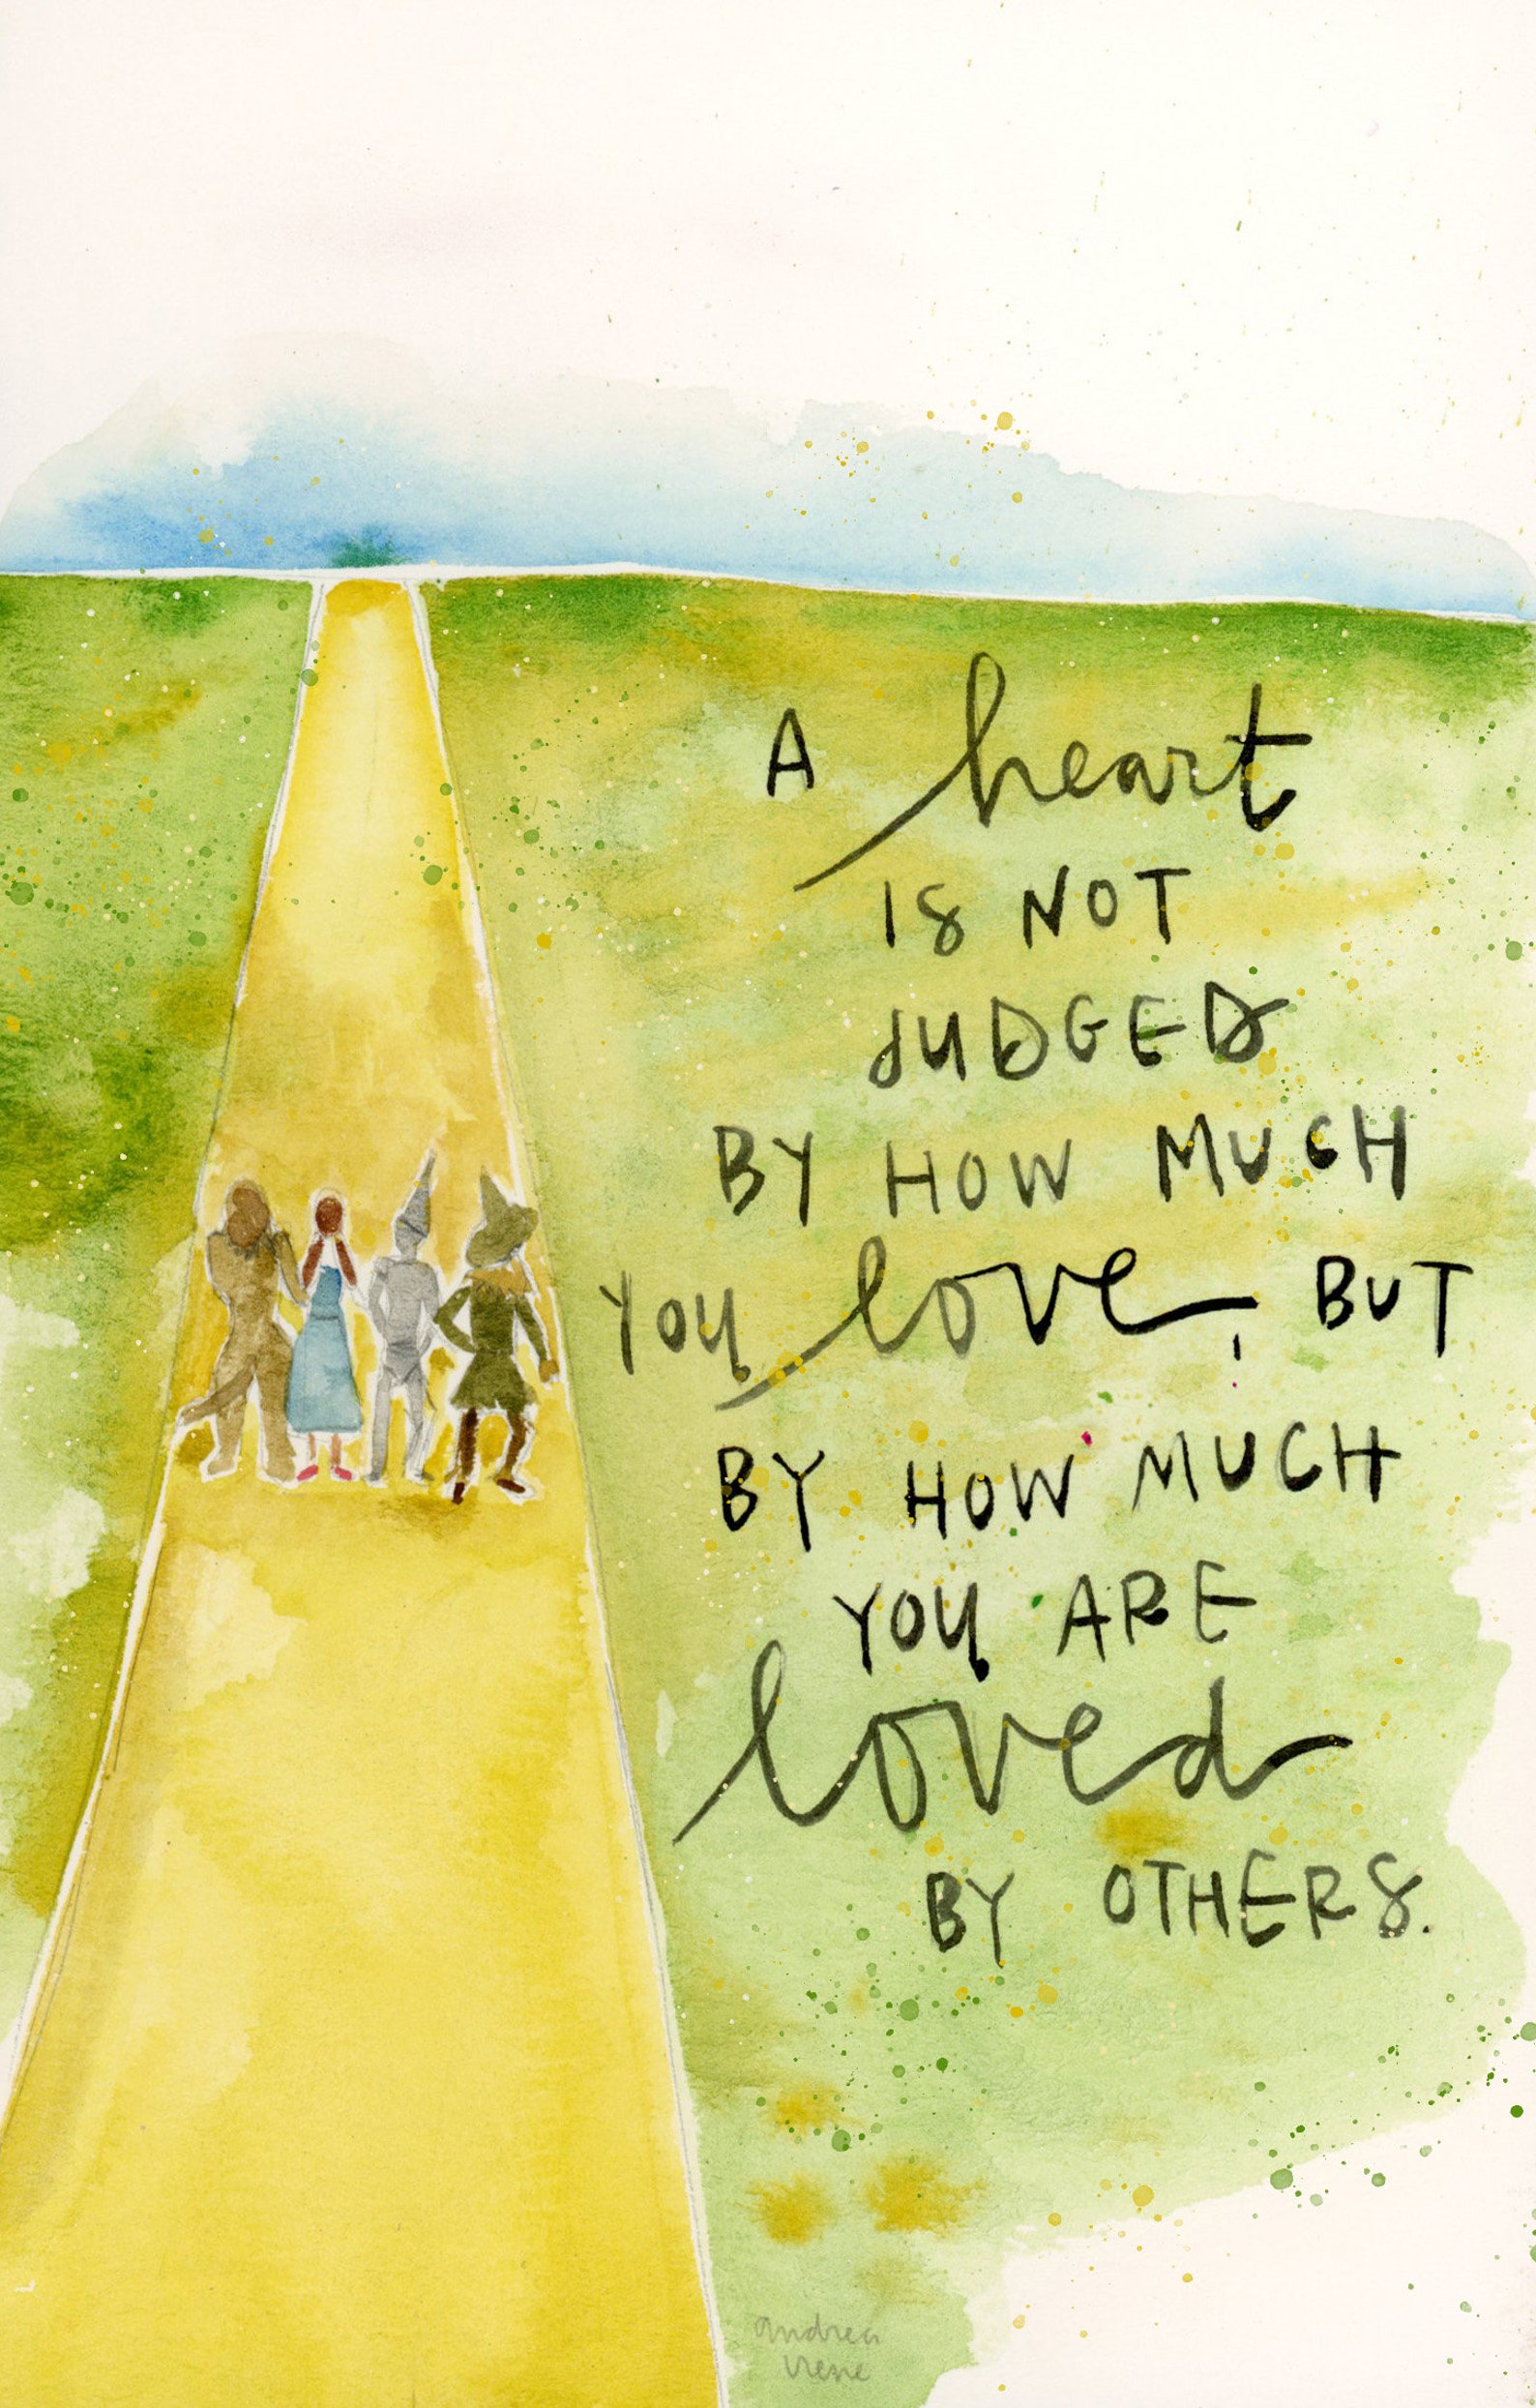 A heart
IS NOT
JUDGED
BY HOW MUCH
YOU love, BUT
BY HOW MUCH
YOU ARE
loved
BY OTHERS.
andrea
irene